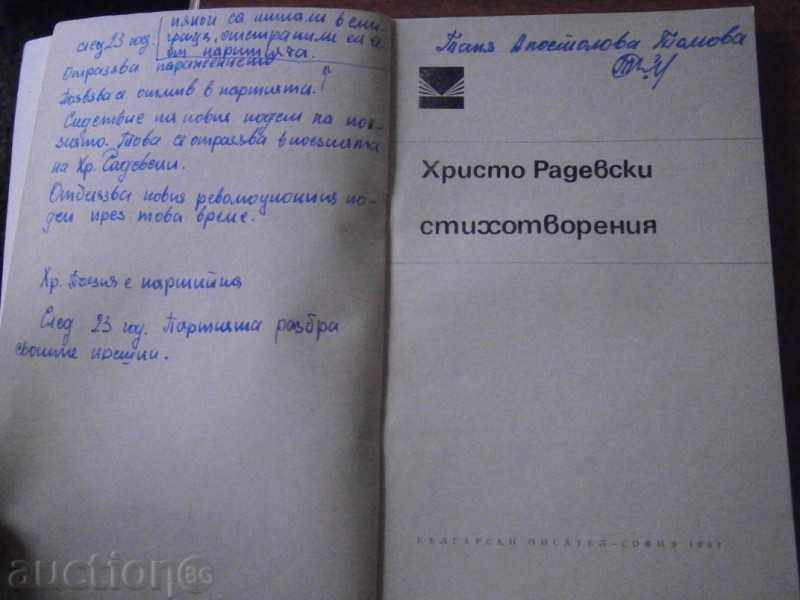 след 23 год.
някои са
отстранили се
от партията.
Отразява поражението
отлив в партията.
Следствие на новия подем на
Това се отразява в поезията
на Хр. Радевски.
Отбелязва новия революционния по-
ем през това време.
Хр. Поезия е партийна
След 23 год. Партията разбра
своите грешки.
Таня Апостолова Томова
Христо Радевски
стихотворения
БЪЛГАРСКИ ПИСАТЕЛ—СОФИЯ
auctionBG